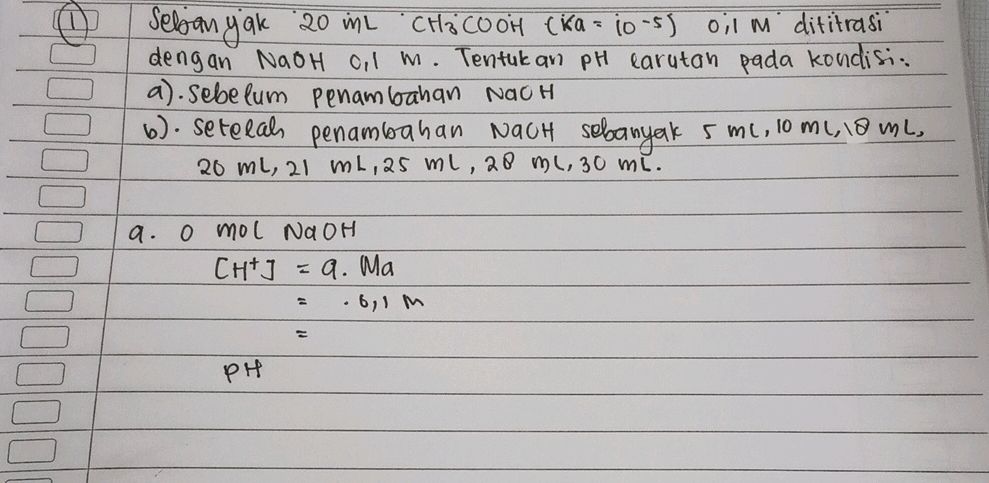 ① Sebanyak 20 mL CH3COOH (Ka = 10-5) 0,1 M dititrasi
dengan NaOH 0,1 M. Tentukan pH larutan pada kondisi:
a). Sebelum penambahan NaOH
b). setelah penambahan NaOH sebanyak 5 mL, 10 mL, 18 mL,
20 mL, 21 mL, 25 mL, 28 mL, 30 mL.
a. 0 mol NaOH
[H+] = a. Ma
= . 0,1 M
=
pH